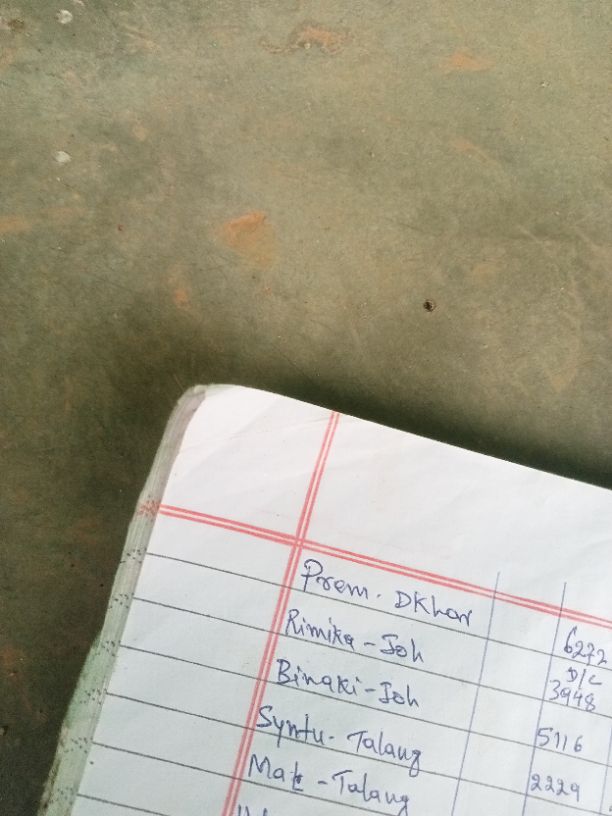 Prem. DKhar 6272
Rimika - Joh D/C 3948
Binaki - Joh
Syntu - Talang 5116
Mak - Talang 2229